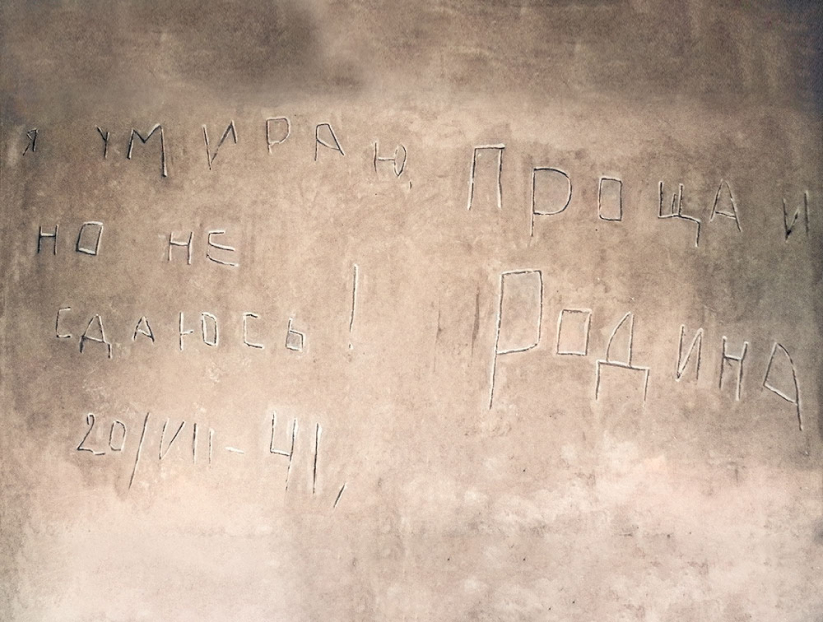 Я УМИРАЮ,
НО НЕ
СДАЮСЬ!
20/VII-41,
ПРОЩАИ
РОДИНА